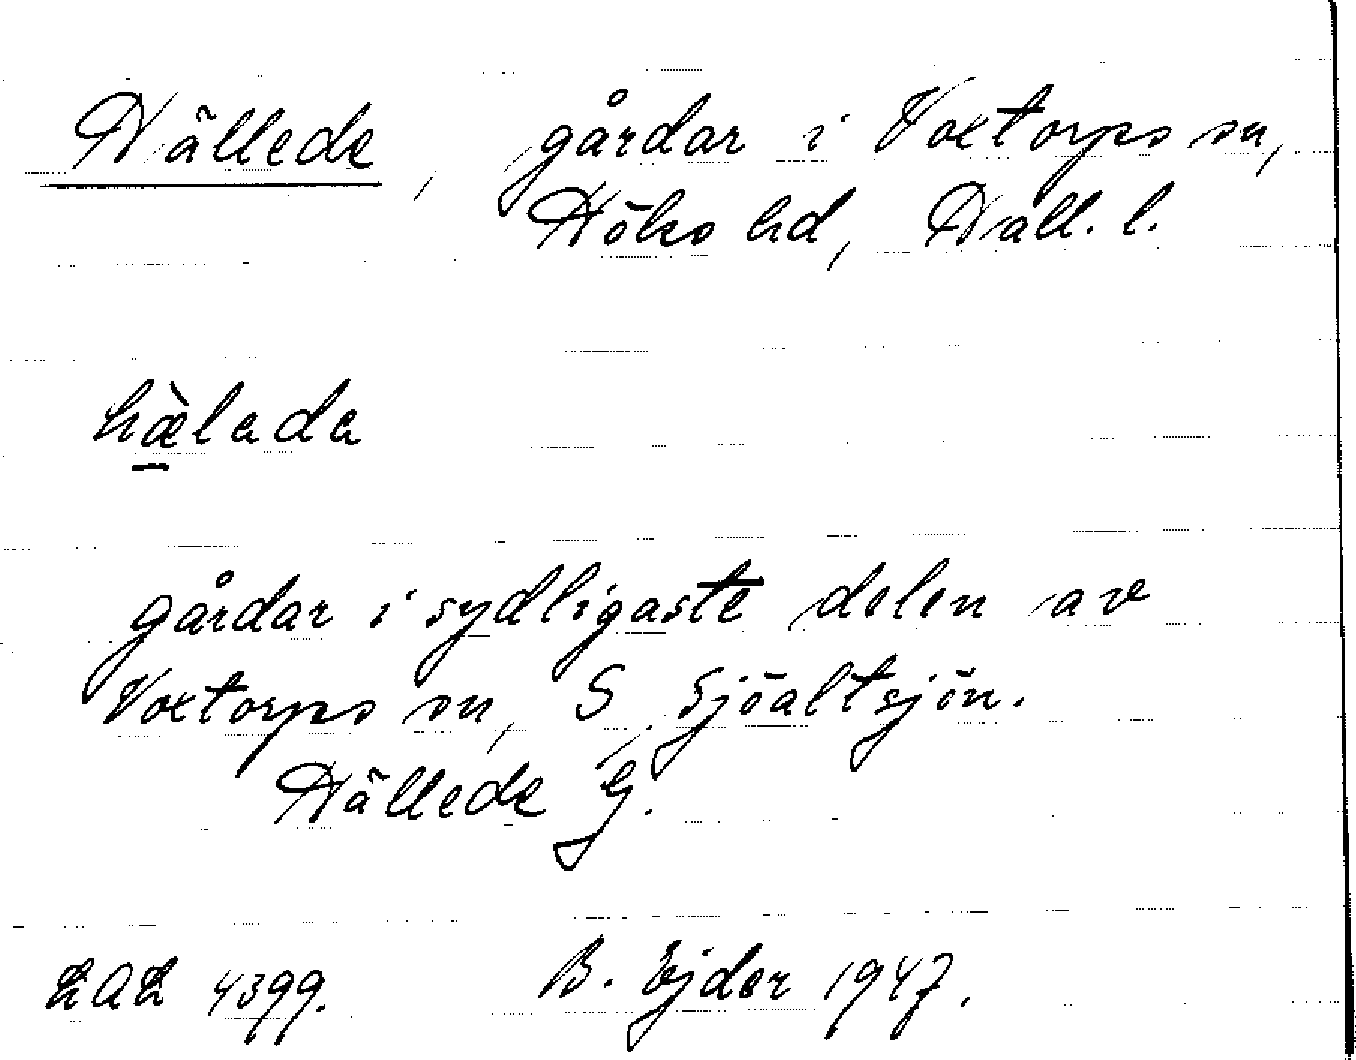 Hällede, gårdar i Voxtorps sn,
Höks hd, Hall. l.
hæ̀lada
gårdar i sydligaste delen av
Voxtorps sn, S. Sjöaltsjön.
Hällede G.
LAL 4399. B. Ejder 1947.